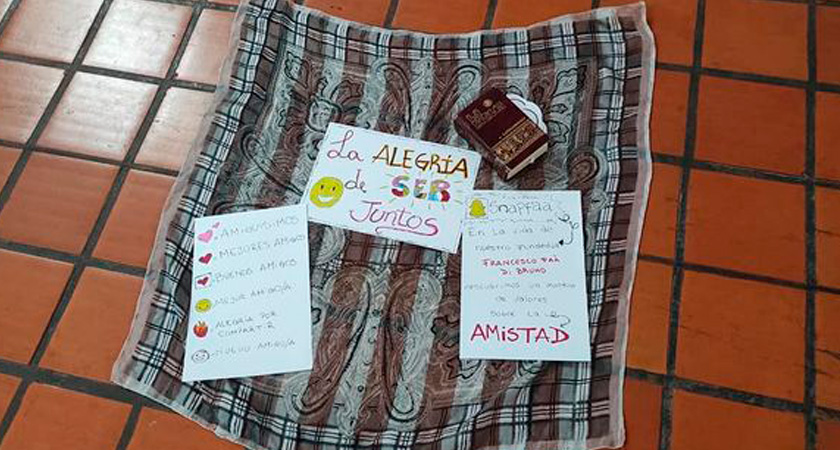 La ALEGRÍA
de SER
Juntos
AMIGUÍSIMOS
MEJORES AMIGOS
BUENOS AMIGOS
MEJOR AMIGO/A
ALEGRÍA POR
COMPARTIR
NUEVO AMIGO/A
Snapfaa
En La vida de
nuestro fundador
FRANCESCO FAÀ
Di BRUNO
descubrimos un montón
de valores
sobre la
AMiSTAD